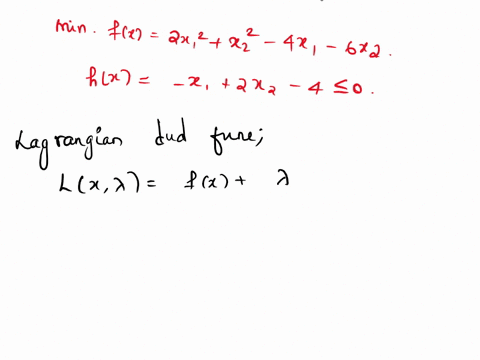 Min. f(x) = 2x₁² + x₂² - 4x₁ - 6x₂.
h(x) = -x₁ + 2x₂ - 4 ≤ 0.
Lagrangian dud func;
L(x, λ) = f(x) + λ